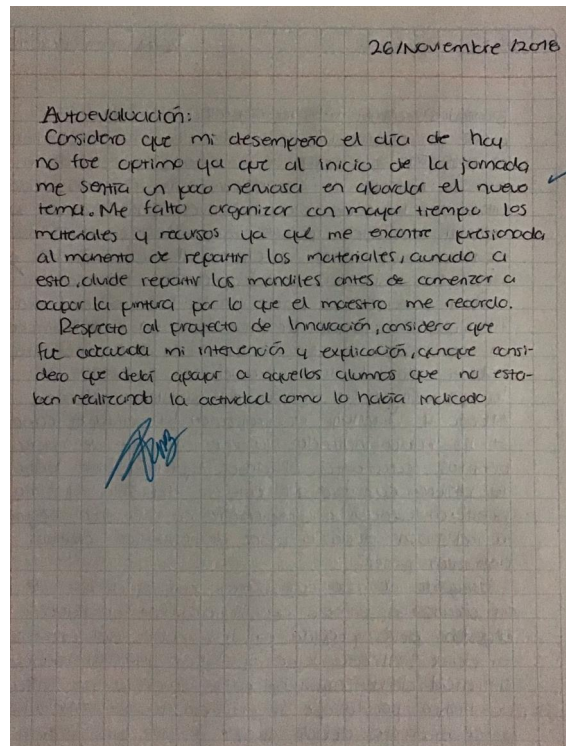 26/Noviembre/2018
Autoevaluación:
Considero que mi desempeño el día de hoy
no fue optimo ya que al inicio de la jornada
me sentía un poco nerviosa en abordar el nuevo
tema. Me falto organizar con mayor tiempo los
materiales y recursos ya que me encontre presionada
al momento de repartir los materiales, aunado a
esto, olvide repartir los mandiles antes de comenzar a
ocupar la pintura por lo que el maestro me recordo.
Respecto al proyecto de Innovación, considero que
fue adecuada mi intervención y explicación, aunque consi-
dero que debí apoyar a aquellos alumnos que no esta-
ban realizando la actividad como lo había indicado